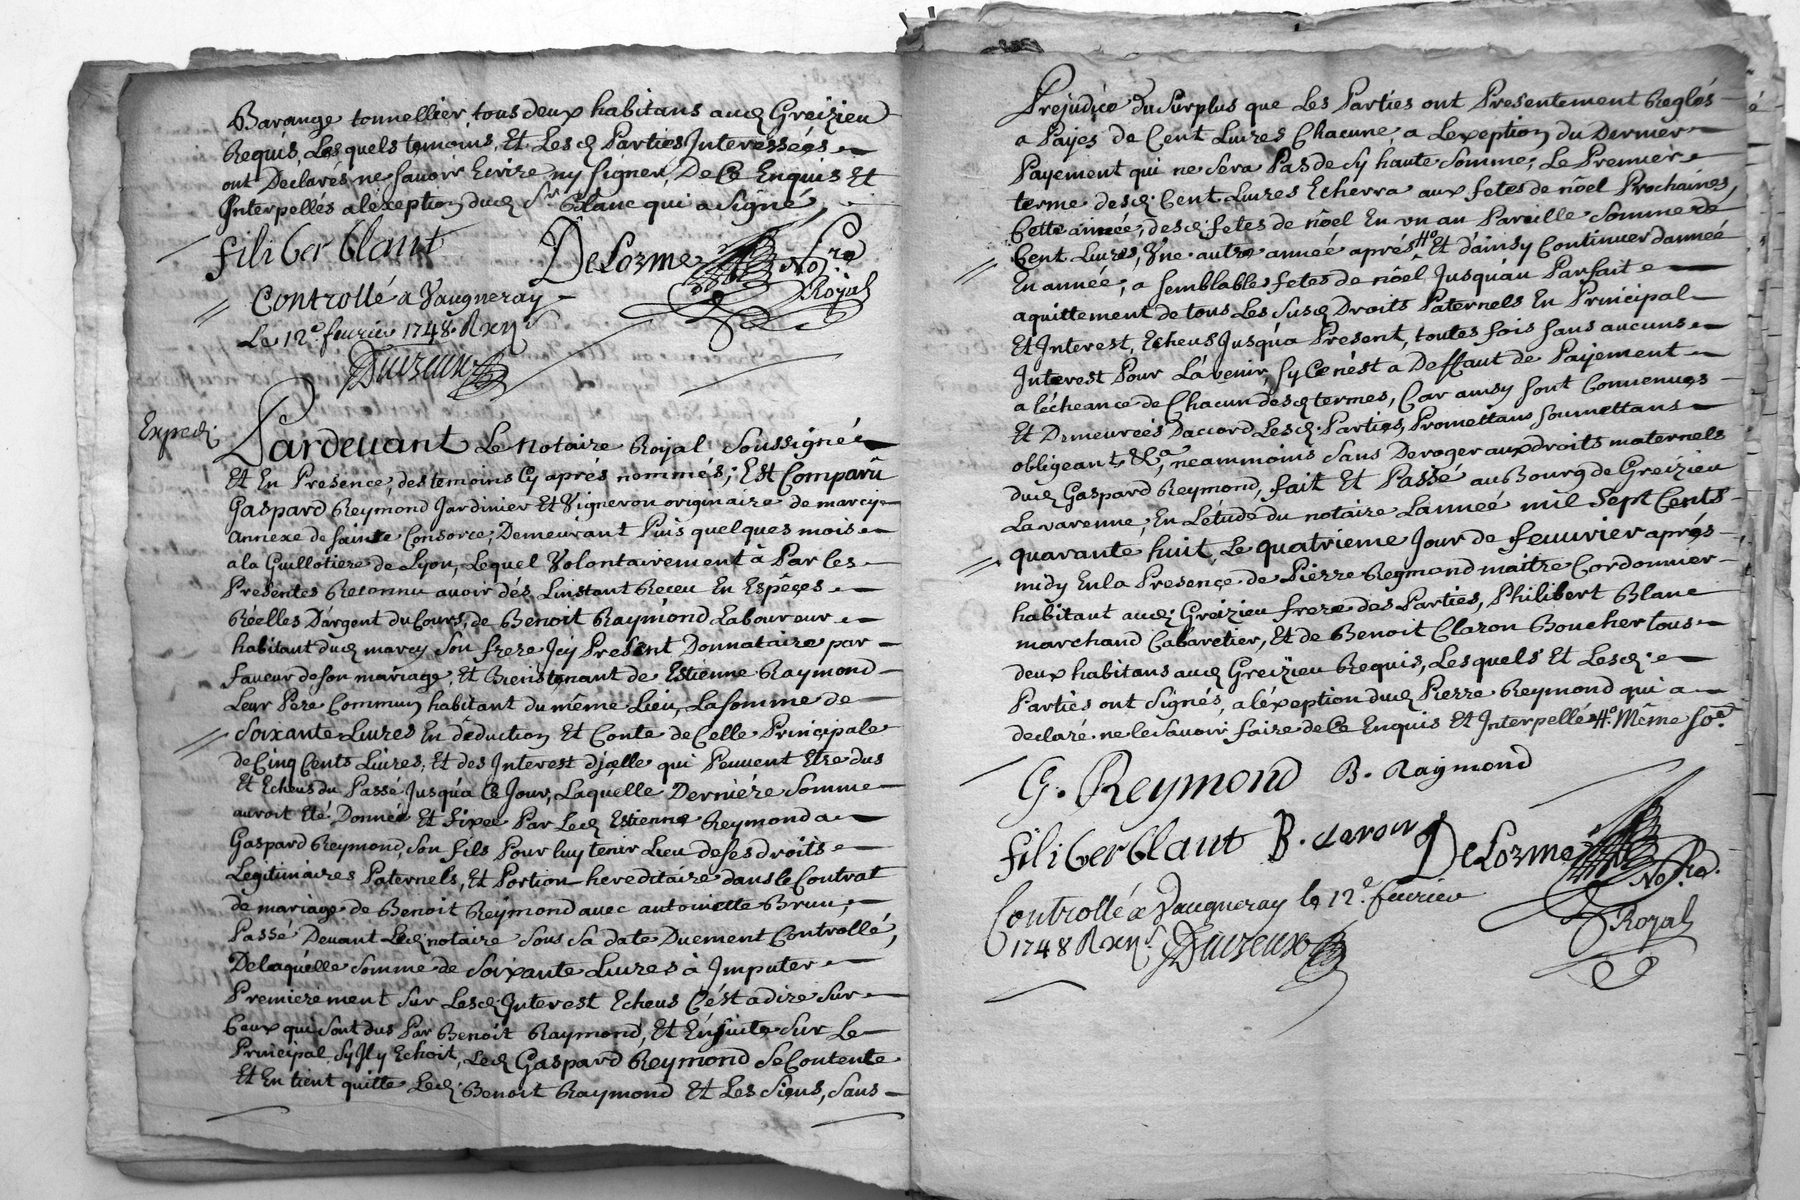 Barange tonnellier, tous deux habitans aud. Greizieu
Requis, Lesquels temoins, Et Lesd. Parties Interésseés
ont Declarés ne savoir Ecrire ny signer, De Ce Enquis Et
Interpellés a l'éxeption dud. Sr. Blanc qui a signé,
filiber blant
DeLorme
No.re
Royal
Controllé a Vaugneray
Le 12e. feurier 1748. R xii s
Duizeux
Exped.
Pardevant Le Notaire Royal Soussigné
Et En Presence, des temoins Cy aprés nommés; Est Comparû
Gaspard Reymond Jardinier Et Vigneron originaire de marcy
annexe de sainte Consorce; Demeurant Puis quelques mois
a la Guillotiere de Lyon, Lequel Volontairement à Par les
Presentes Reconnu avoir dés Linstant Receu En Espêçes
Réelles D'argent du Cours, de Benoit Raymond, Laboureur
habitant dud. marcy son frere Jcy Present Donnataire par
faueur de son mariage, Et Bienstenant de Estienne Raymond
Leur Pere Commun habitant du même Lieu, La somme de
Soixante Livres En déduction Et Conte de Celle Principale
de Cinq Cents Livres, Et des Interest d'jçelle qui Peuvent Etre dus
Et Echeus du Passé Jusqu'a Ce Jour, Laquelle Derniére Somme
auroit Eté Donneé Et fixeé Par Led. Estienne Reymond a
Gaspard Reymond, son fils Pour luy tenir Lieu de ses droits
Légitimaires Paternels, Et Portion hereditaire dans le Contrat
de mariage de Benoit Reymond avec antoinette Brun,
Passé Devant Led. notaire sous sa date Duement Controllé,
De laquelle somme de Soixante Livres à Jmputer
Premierement sur Lesd. Interest Echeus C'ést a dire sur
Ceux qui sont dus Par Benoit Raymond, Et Ensuite sur Le
Principal sy Jl y Echoit, Led. Gaspard Reymond se Contente
Et En tient quitte Led. Benoit Raymond Et Les siens, sans
Prejudiçe du surplus que Les Parties ont Presentement Reglés
a Payes de Cent Livres Chacune, a Lexeption du Dernier
Payement qui ne sera Pas de sy haute somme; Le Premier
terme desd. Cent Livres Echerra aux fetes de nôel Prochaines,
Cette anneé, desd. fetes de nôel En un an Pareille somme de
Cent Livres, Vne autre anneé aprés #o Et dainsy Continuer danneé
En anneé, a semblables fetes de nôel Jusqu'au Parfait
aquittement de tous Les susd. Droits Paternels En Principal
Et Interest, Echeus Jusqu'a Present, toutes fois sans aucuns
Interest Pour L'avenir, sy Ce n'ést a Deffaut de Payement
a lécheance de Chacun desd. termes, Car ainsy sont Convenues
Et Demeureés Daccord Lesd. Parties, Promettans soumettans
obligeant, &a, neammoins sans Deroger aux droits maternels
dud. Gaspard Reymond, fait Et Passé au Bourg de Greizieu
Lavarenne, En Létude du notaire Lanneé mil sept Cents
quarante huit, Le quatrieme Jour de feuvrier aprés
midy En la Presençe de Pierre Reymond maitre Cordonnier
habitant aud. Greizieu frere des Parties, Philibert Blanc
marchand Cabaretier, Et de Benoit Claron Boucher tous
deux habitans aud. Greizieu Requis, Lesquels Et Lesd.
Parties ont signés, a léxeption dud. Pierre Reymond qui a
declaré ne le savoir faire de Ce Enquis Et Interpellé #o Même se.
G. Reymond B. Raymond
filiber blant B. claron DeLorme
No.re.
Royal
Controllé a Vaugneray le 12e. feurier
1748 R xii s Duizeux